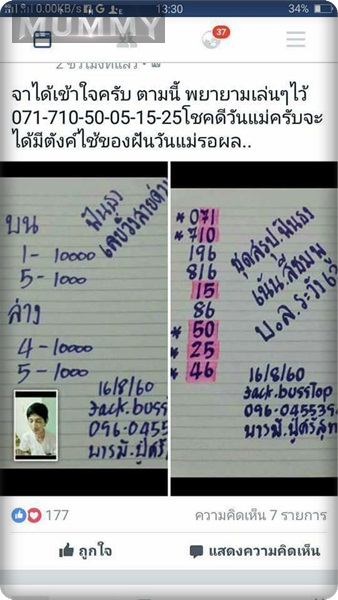 MUMMY
0.00KB/s
G
13:30
34%
37
2 ชั่วโมงที่แล้ว
จาได้เข้าใจครับ ตามนี้ พยายามเล่นๆไว้
071-710-50-05-15-25โชคดีวันแม่ครับจะ
ได้มีตังค์ใช้ของฝันวันแม่รอผล..
บน
ฟันธง
1- 10000
5- 10000
ล่าง
4-10000
5-10000
16/8/60
Jack.busstop
096-0455
บารมี.ปู่ศรี
*071
*710
196
816
15
86
*50
*25
*46
ชุดสรุป.ฟันธง
เน้น.สีชมพู
บ.ล.ระวัง
16/8/60
Jack.busstop
096-045539
บารมี.ปู่ศรีสุท
177
ความคิดเห็น 7 รายการ
ถูกใจ
แสดงความคิดเห็น